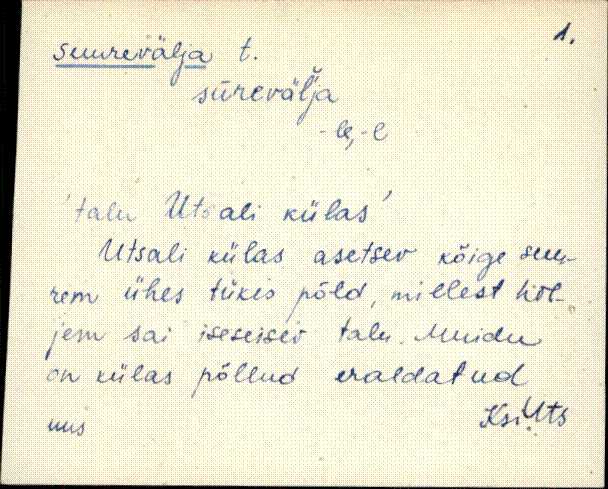 1.
suurevälja t.
sūrevälja
-le, -l
'talu Utsali külas'
Utsali külas asetsev kõige suu-
rem ühes tükis põld, millest hil-
jem sai iseseisev talu. Muidu
on külas põllud eraldatud
uus
Ksi. Uts